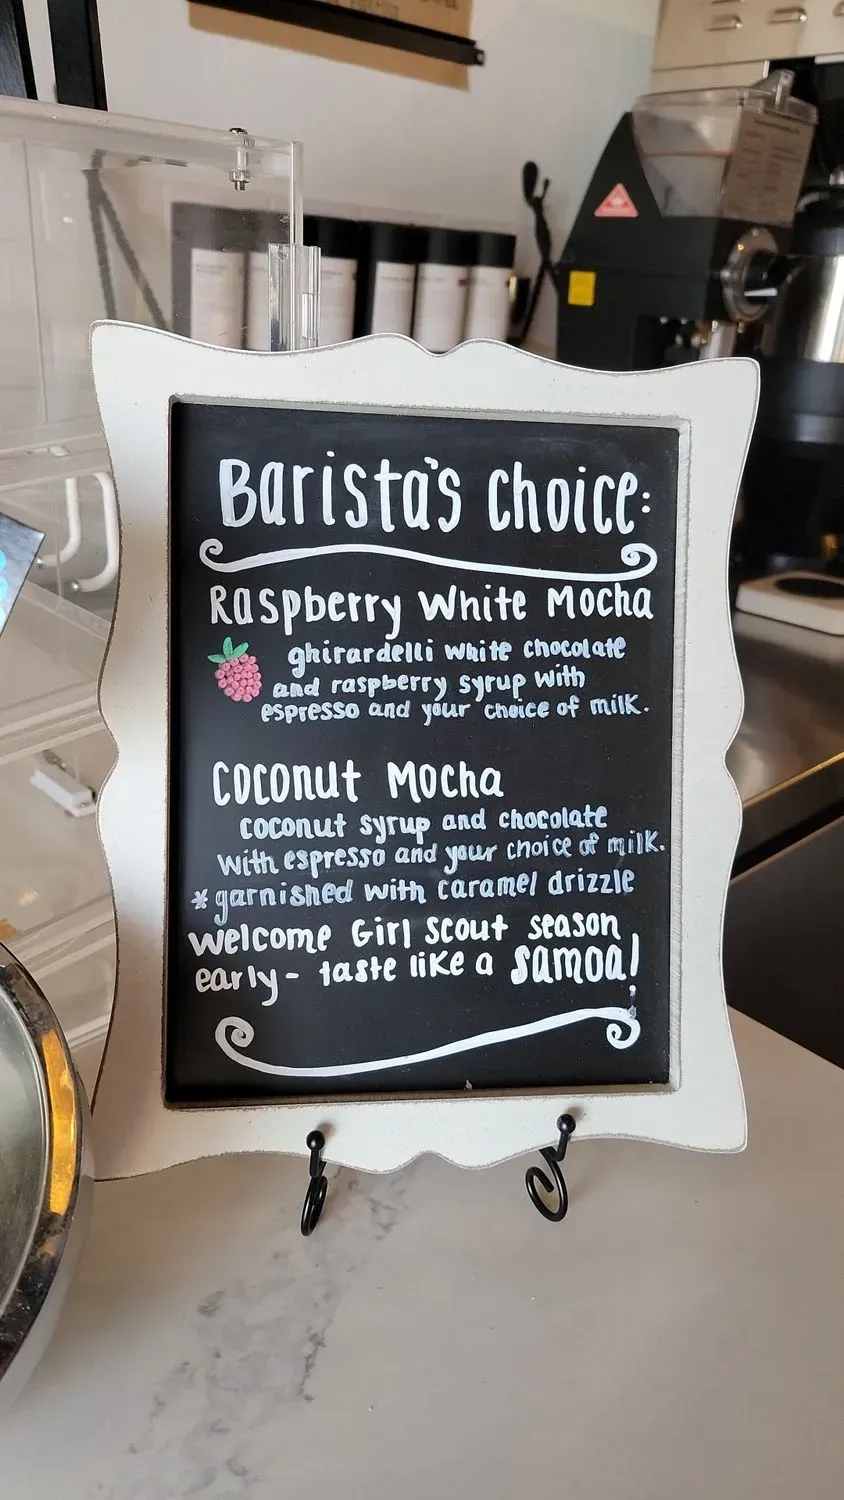 Barista's Choice:
Raspberry White Mocha
ghirardelli white chocolate
and raspberry syrup with
espresso and your choice of milk.
Coconut Mocha
coconut syrup and chocolate
with espresso and your choice of milk.
* garnished with caramel drizzle
welcome Girl Scout season
early - taste like a samoa!